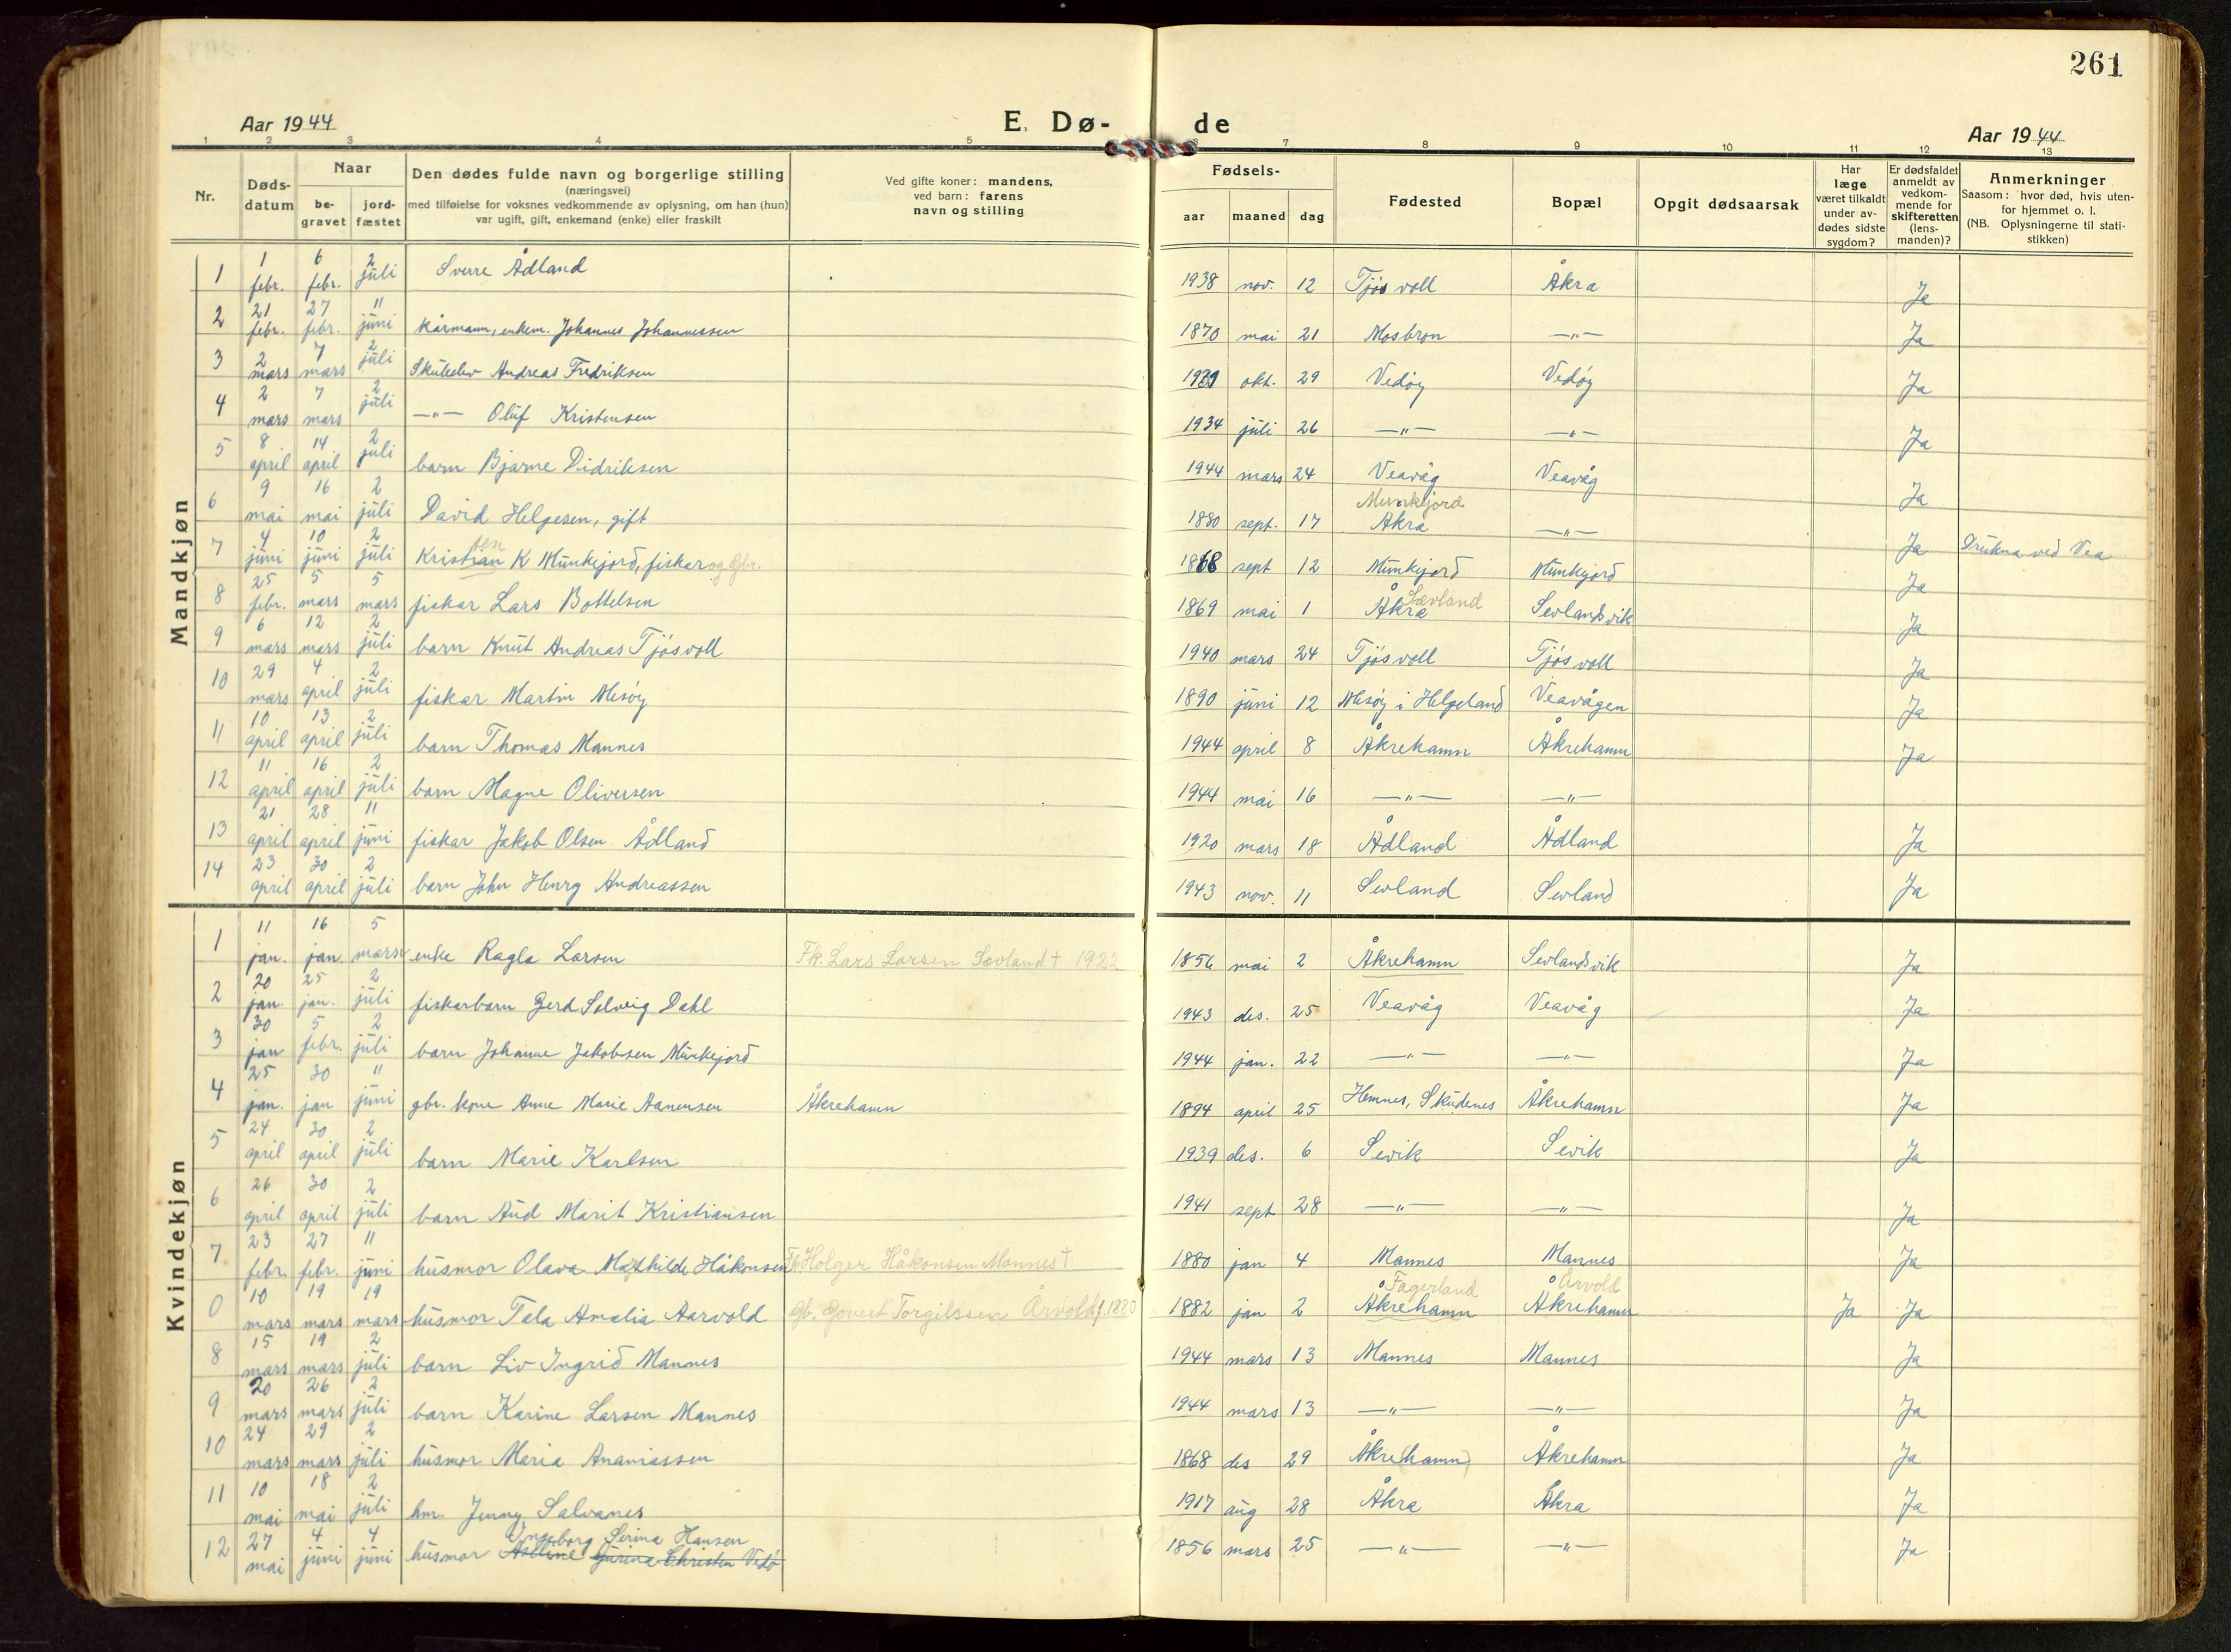 261
Aar 1944 E. Dø- de Aar 1944
1 2 3 4 5 6 7 8 9 10 11 12 13
Nr. Døds-datum Naar be-gravet jord-fæstet Den dødes fulde navn og borgerlige stilling (næringsvei) med tilføielse for voksnes vedkommende av oplysning, om han (hun) var ugift, gift, enkemand (enke) eller fraskilt Ved gifte koner: mandens, ved barn: farens navn og stilling Fødsels- aar maaned dag Fødested Bopæl Opgit dødsaarsak Har læge været tilkaldt under av-dødes sidste sygdom? Er dødsfaldet anmeldt av vedkom-mende for skifteretten (lens-manden)? Anmerkninger Saasom: hvor død, hvis uten-for hjemmet o. l. (NB. Oplysningerne til stati-stikken)
Mandkjøn
1 1 febr. 6 febr. 2 juli Sverre Ådland 1938 nov. 12 Tjøsvoll Åkra Ja
2 21 febr. 27 febr. 11 juni kårmann, enkem. Johannes Johannessen 1870 mai 21 Mosbron —"— Ja
3 2 mars 7 mars 2 juli Skuleelev Andreas Fredriksen 1931 okt. 29 Vedøy Vedøy Ja
4 2 mars 7 mars 2 juli —"— Oluf Kristensen 1934 juli 26 —"— —"— Ja
5 8 april 14 april 2 juli barn Bjarne Didriksen 1944 mars 24 Veavåg Veavåg Ja
6 9 mai 16 mai 2 juli David Helgesen, gift 1880 sept. 17 Munkejord Åkra —"— Ja Drukna ved Vea
7 4 juni 10 juni 2 juli Kristian sen K Munkejord, fiskar og Gbr. 1868 sept 12 Munkejord Munkejord Ja
8 25 febr. 5 mars 5 mars fiskar Lars Bottelsen 1869 mai 1 Åkra Sævland Sevlandsvik Ja
9 6 mars 12 mars 2 juli barn Knut Andreas Tjøsvoll 1940 mars 24 Tjøsvoll Tjøsvoll Ja
10 29 mars 4 april 2 juli fiskar Martin Mesøy 1890 juni 12 Mesøy i Helgeland Veavågen Ja
11 10 april 13 april 2 juli barn Thomas Mannes 1944 april 8 Åkrehamn Åkrehamn Ja
12 11 april 16 april 2 juli barn Magne Oliversen 1944 mai 16 —"— —"—
13 21 april 28 april 11 juni fiskar Jakob Olsen Ådland 1920 mars 18 Ådland Ådland Ja
14 23 april 30 april 2 juli barn John Henry Andreassen 1943 nov. 11 Sevland Sevland Ja
Kvindekjøn
1 11 jan. 16 jan. 5 mars enke Ragla Larsen Fk. Lars Larsen Sævland † 1922 1856 mai 2 Åkrehamn Sevlandsvik Ja
2 20 jan. 25 jan. 2 juli fiskarbarn Gerd Solveig Dahl 1943 des. 25 Veavåg Veavåg Ja
3 30 jan 5 febr. 2 juli barn Johanne Jakobsen Munkejord 1944 jan. 22 —"— —"— Ja
4 25 jan. 30 jan 11 juni gbr. kone Anne Marie Aanensen Åkrehamn 1894 april 25 Hemnes, Skudenes Åkrehamn Ja
5 24 april 30 april 2 juli barn Marie Karlsen 1939 des. 6 Sevik Sevik Ja
6 26 april 30 april 2 juli barn Aud Marit Kristiansen 1941 sept 28 —"— —"— Ja
7 23 febr. 27 febr. 11 juni husmor Olava Mathilde Håkonsen Fk. Holger Håkonsen Mannes † 1880 jan 4 Mannes Mannes Ja
0 10 mars 19 mars 19 mars husmor Tala Amalia Aarvold Gb. Govert Torgilssen Årvold f. 1880 1882 jan 2 Fagerland Åkrehamn Årvold Åkrehamn Ja Ja
8 15 mars 19 mars 2 juli barn Liv Ingrid Mannes 1944 mars 13 Mannes Mannes Ja
9 20 mars 26 mars 2 juli barn Karine Larsen Mannes 1944 mars 13 —"— —"— Ja
10 24 mars 29 mars 2 juli husmor Maria Ananiassen 1868 des 29 Åkre(hamn) Åkrehamn Ja
11 10 mai 18 mai 2 juli hm. Jenny Salvanes 1917 aug 28 Åkra Åkra Ja
12 27 mai 4 juni 4 juni husmor Ingeborg Serina Hansen 1856 mars 25 —"— —"— Ja